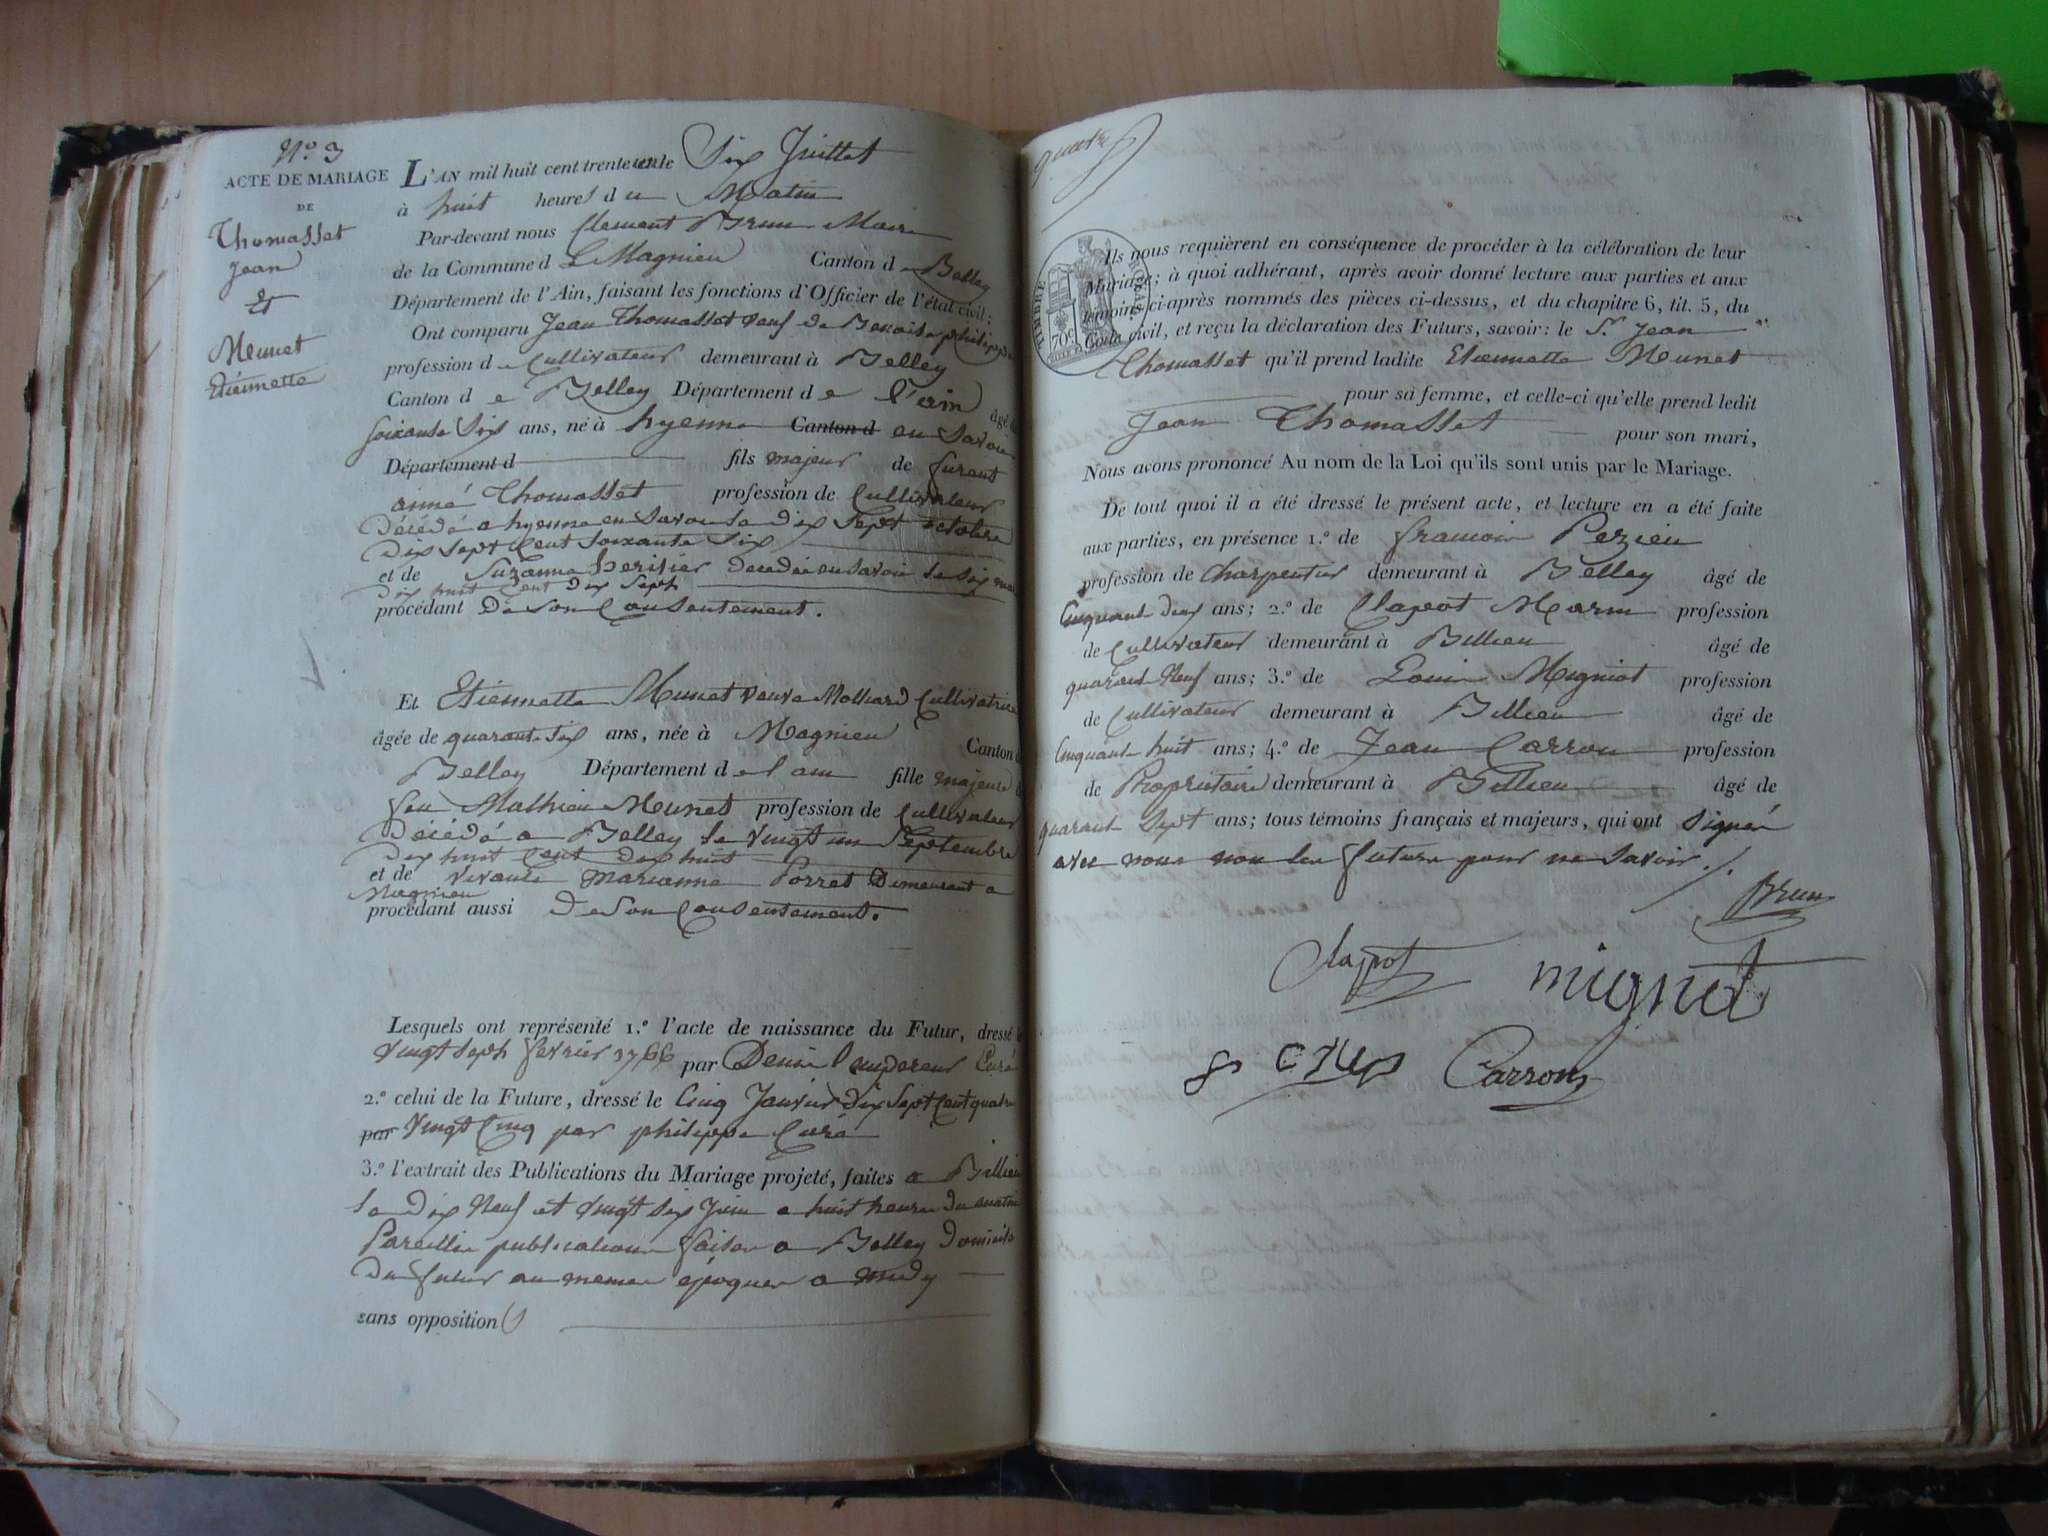 N.o 3
ACTE DE MARIAGE
DE
Thomasset
Jean
Et
Meunet
Etiennette
L'AN mil huit cent trente un le Six Juillet
à huit heures du Matin
Par-devant nous Clement Brun Maire
de la Commune d Magnieu Canton de Belley
Département de l'Ain, faisant les fonctions d'Officier de l'état civil;
Ont comparu Jean Thomasset veuf de Benoite philippe
profession de Cultivateur demeurant à Belley
Canton de Belley Département de l'ain âgé de
soixante Six ans, né à hyenne Canton d en Savoie
Département d fils majeur de
aimé Thomasset profession de Cultivateur
Décédé a hyenne en Savoie le dix Sept octobre
Dix Sept Cent Soixante Six
et de Suzanne décédée en Savoie le Six mai
dix huit Cent Dix Sept
procédant De Son Consentement.
Et Etiennette Meunet veuve Molliard Cultivatrice
âgée de quarante Six ans, née à Magnieu Canton d
Belley Département de l'ain fille majeure d
feu Mathieu Meunet profession de Cultivateur
Décédé a Belley le vingt un Septembre
Dix huit Cent Dix huit
et de vivante Marianne Porret Demeurant a
Magnieu
procédant aussi De Son Consentement.
Lesquels ont représenté 1.o l'acte de naissance du Futur, dressé le
vingt Sept fevrier 1766 par Denis Curé
2.o celui de la Future, dressé le Cinq Janvier Dix Sept Cent quatre
par Vingt Cinq par philippe Curé
3.o l'extrait des Publications du Mariage projeté, faites a Billieu
le Dix Neuf et vingt Six Juin a huit heures du matin
Pareilles publications faites a Belley Domicile
Du futur au memes époques a midy
sans opposition
quatre
TIMBRE ROYAL
70c
Ils nous requièrent en conséquence de procéder à la célébration de leur
Mariage; à quoi adhérant, après avoir donné lecture aux parties et aux
témoins ci-après nommés des pièces ci-dessus, et du chapitre 6, tit. 5, du
Code civil, et reçu la déclaration des Futurs, savoir: le Sr. Jean
Thomasset qu'il prend ladite Etiennette Meunet
pour sa femme, et celle-ci qu'elle prend ledit
Jean Thomasset pour son mari,
Nous avons prononcé Au nom de la Loi qu'ils sont unis par le Mariage.
De tout quoi il a été dressé le présent acte, et lecture en a été faite
aux parties, en présence 1.o de francois Pezieu
profession de Charpentier demeurant à Belley âgé de
Cinquante deux ans; 2.o de Clapot Marin profession
de Cultivateur demeurant à Billieu âgé de
quarante Neuf ans; 3.o de Louis Migniot profession
de Cultivateur demeurant à Billieu âgé de
Cinquante huit ans; 4.o de Jean Carron profession
de Proprietaire demeurant à Billieu âgé de
quarante Sept ans; tous témoins français et majeurs, qui ont Signé
avec nous non la future pour ne Savoir ./.
Brun
Clapot mignot
Carron